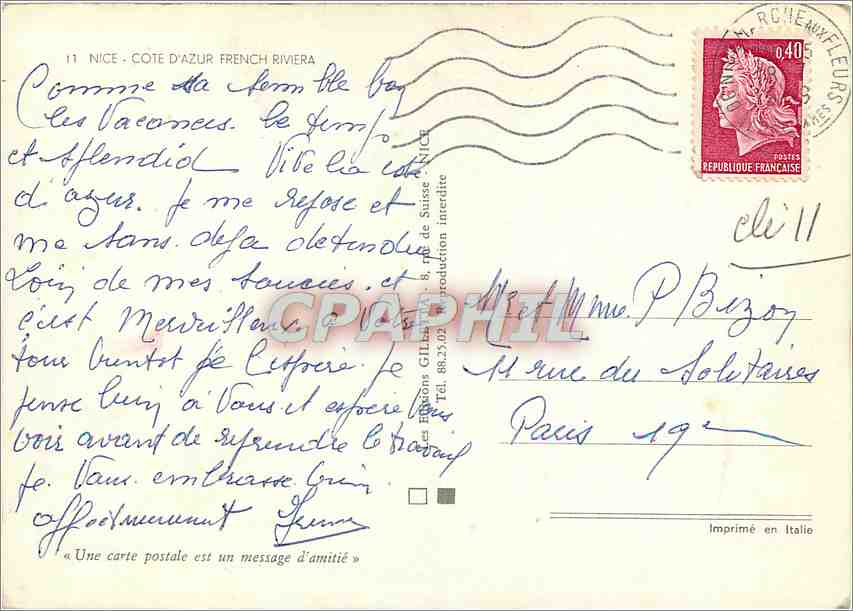 11 NICE - COTE D'AZUR FRENCH RIVIERA
Comme sa semble bon
les Vacances. le temps
et splendid Vive la cote
d'azur. Je me repose et
me sans deja detendue
Loin de mes soucies. et
c'est Merveilleux. a Votre
tour bientot je l'espere. Je
pense bien à Vous et espere Vous
voir avant de reprendre le travail
Je Vous embrasse bien
affectueusement
« Une carte postale est un message d'amitié »
Les Editions GILLETTA - 8, rue de Suisse - NICE
Tél. 88.25.02 Reproduction interdite
MARCHE AUX FLEURS
0,40
POSTES
REPUBLIQUE FRANÇAISE
clé 11
Mr et Mme P Bizoy
11 rue du Solitaires
Paris 19e
Imprimé en Italie
CPAPHIL